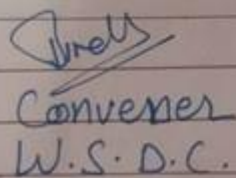 Convener
W.S.D.C.